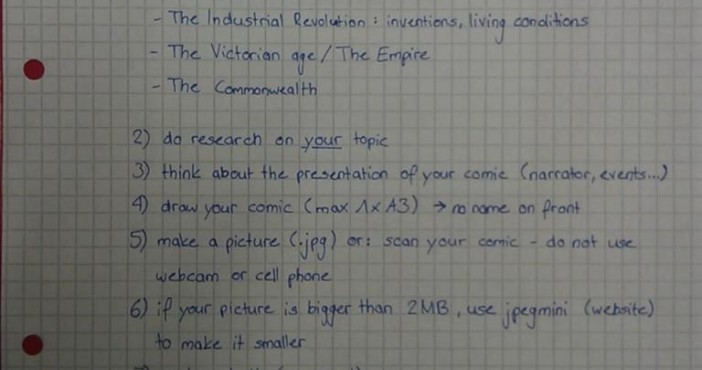 - The Industrial Revolution : inventions, living conditions
- The Victorian age / The Empire
- The Commonwealth
2) do research on your topic
3) think about the presentation of your comic (narrator, events...)
4) draw your comic (max 1x A3) → no name on front
5) make a picture (.jpg) or: scan your comic - do not use
webcam or cell phone
6) if your picture is bigger than 2MB, use jpegmini (website)
to make it smaller